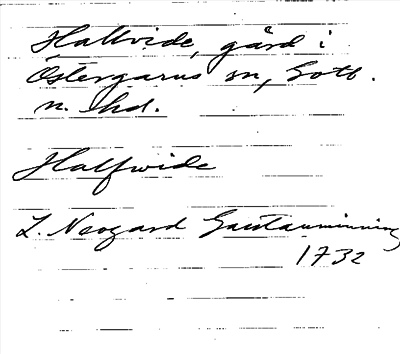 Hallvide, gård i
Östergarns sn, Gotl.
n. hd.
Halfwide
L. Neogard Gautauminning
1732